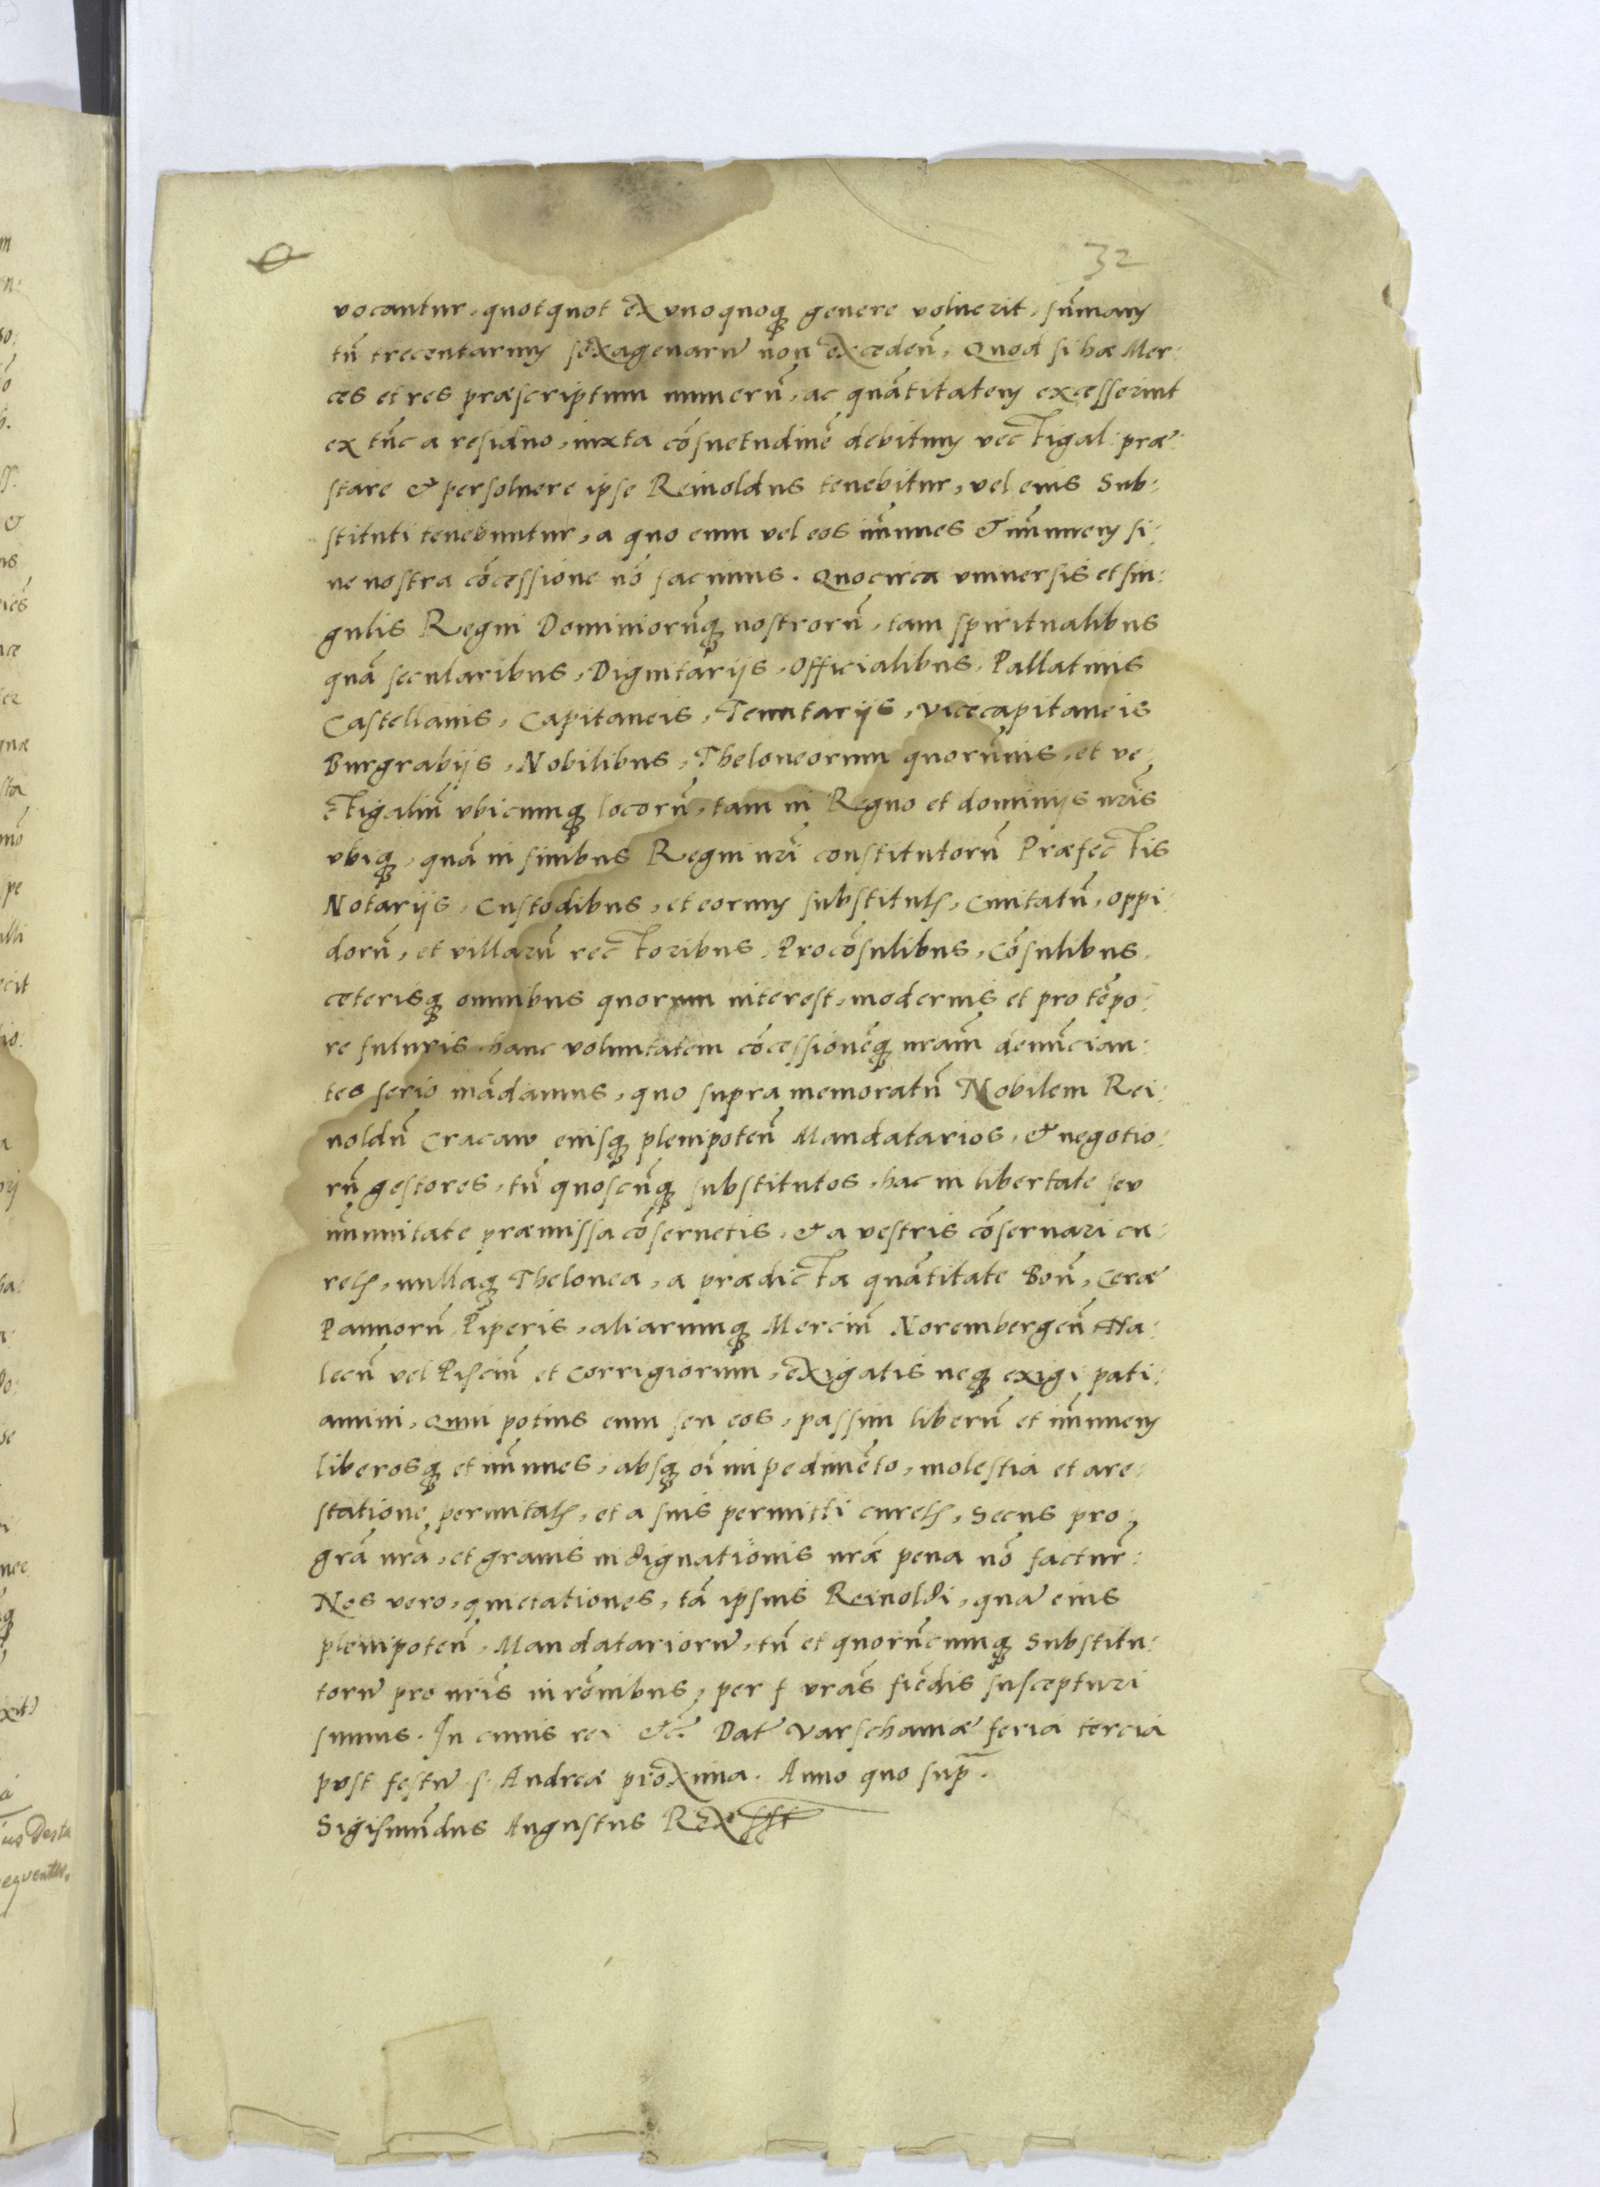 32
vocantur, quotquot ex vnoquoqꝫ genere voluerit, sum̃am
tñ trecentarum sexagenarũ non exceden̄, Quod si hæ Mer:
ces et res præscriptum numerũ, ac quãtitatem excesserint
ex tũc a residuo, iuxta cõsuetudinẽ debitum vectigal præ:
stare & persoluere ipse Reinoldus tenebitur, vel eius Sub:
stituti tenebuntur, a quo eum vel eos im̃unes & im̃unem si:
ne nostra cõcessione nõ facimus. Quocirca vniuersis et sin:
gulis Regni Dominiorũqꝫ nostrorũ, tam spiritualibus
quã secularibus, Dignitarijs, Officialibus, Pallatinis
Castellanis, Capitaneis, Tenutarijs, Vicecapitaneis
Burgrabijs, Nobilibus, Theloneorum quorũuis, et ve:
ctigaliũ vbicumqꝫ locorũ, tam in Regno et dominijs nr̃is
vbiqꝫ, quã in finibus Regni nr̃i constitutorũ Præfectis
Notarijs, Custodibus, et eorum substitutis, Ciuitatũ, oppi:
dorũ, et villarũ rectoribus, Procõsulibus, Cõsulibus,
ceterisqꝫ omnibus quorum interest, modernis et pro tẽpo:
re futuris, hanc voluntatem cõcessionẽqꝫ nr̃am denũcian:
tes serio mãdamus, quo supra memoratũ Nobilem Rei:
noldũ Cracaw eiusqꝫ plenipoteñ Mandatarios, & negotio:
rũ gestores, tũ quoscũqꝫ substitutos, hac in libertate seu
im̃unitate præmissa cõseruetis, & a vestris cõseruari cu:
retis, nullaqꝫ Thelonea, a prædicta quãtitate Boũ, Ceræ
Pannorũ Piperis, aliarumqꝫ Merciũ Norembergeñ Ha:
lecũ vel Pisciũ et Corrigiorum, exigatis neqꝫ exigi pati:
amini, quin potius eum seu eos, passim liberũ et im̃unem
liberosqꝫ et im̃unes, absqꝫ oĩ impedimẽto, molestia et are:
statione permitatis, et a suis permitti curetis, Secus pro
grã nr̃a, et grauis indignationis nr̃æ pena nõ facturi:
Nos vero, quietationes, tã ipsius Reinoldi, quã eius
plenipoteñ, Mandatariorũ, tũ et quorũcumqꝫ Substitu:
torũ pro nr̃is in rõnibus, per f vr̃as fiẽdis suscepturi
sumus. In cuius rei &c̃. Dat̃ Varschauiæ feria tercia
post festũ s. Andreæ proxima. Anno quo supr̃.
Sigismũdus Augustus Rex sst